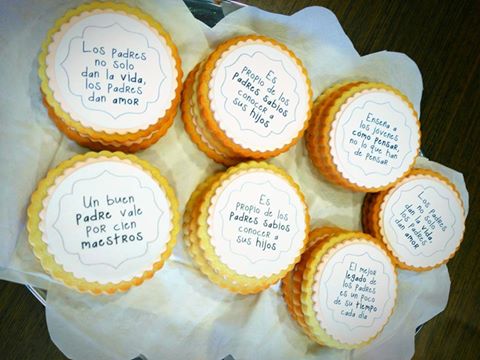 Los padres
no solo
dan la vida,
los padres
dan amor
Es
propio de los
Padres sabios
conocer a
sus hijos
Enseña a
los jóvenes
como pensar,
no lo que han
de pensar
Un buen
padre vale
por cien
maestros
Es
propio de los
Padres sabios
conocer a
sus hijos
Los padres
no solo
dan la vida,
los padres
dan amor
El mejor
legado de
los padres
es un poco
de su tiempo
cada día